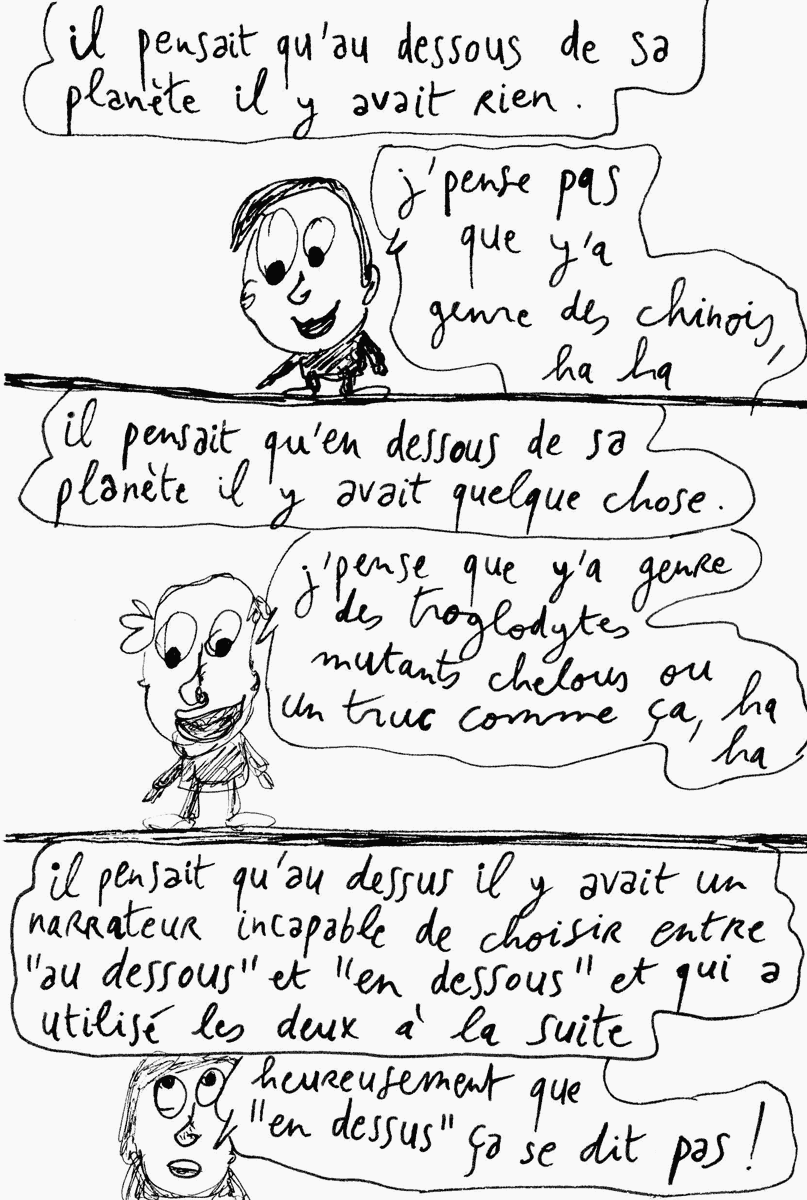 il pensait qu'au dessous de sa
planète il y avait rien.
j'pense pas
que y'a
genre des chinois,
ha ha
il pensait qu'en dessous de sa
planète il y avait quelque chose.
j'pense que y'a genre
des troglodytes
mutants chelous ou
un truc comme ça, ha
ha
il pensait qu'au dessus il y avait un
narrateur incapable de choisir entre
"au dessous" et "en dessous" et qui a
utilisé les deux à la suite
heureusement que
"en dessus" ça se dit pas!